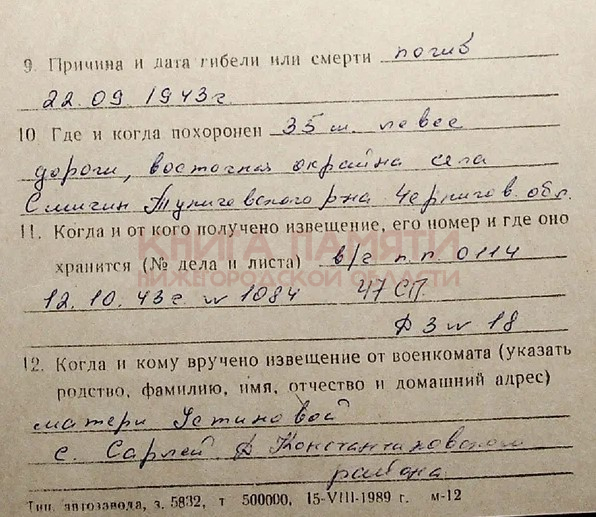 9. Причина и дата гибели или смерти погиб
22.09.1943г.
10. Где и когда похоронен 35 м. левее
дороги, восточная окраина села
Смигин Тупиговского р-на Чернигов. обл.
11. Когда и от кого получено извещение, его номер и где оно
КНИГА ПАМЯТИ
хранится (№ дела и листа) в/ч п.п. 0114
НИЖЕГОРОДСКОЙ ОБЛАСТИ
12.10.43г. № 1084 47 СП.
Д 3 № 18
12. Когда и кому вручено извещение от военкомата (указать
родство, фамилию, имя, отчество и домашний адрес)
матери Устиновой
с. Сарлей Д Константиновского
района
Тип. автозавода, з. 5832, т 500000, 15-VIII-1989 г. м-12